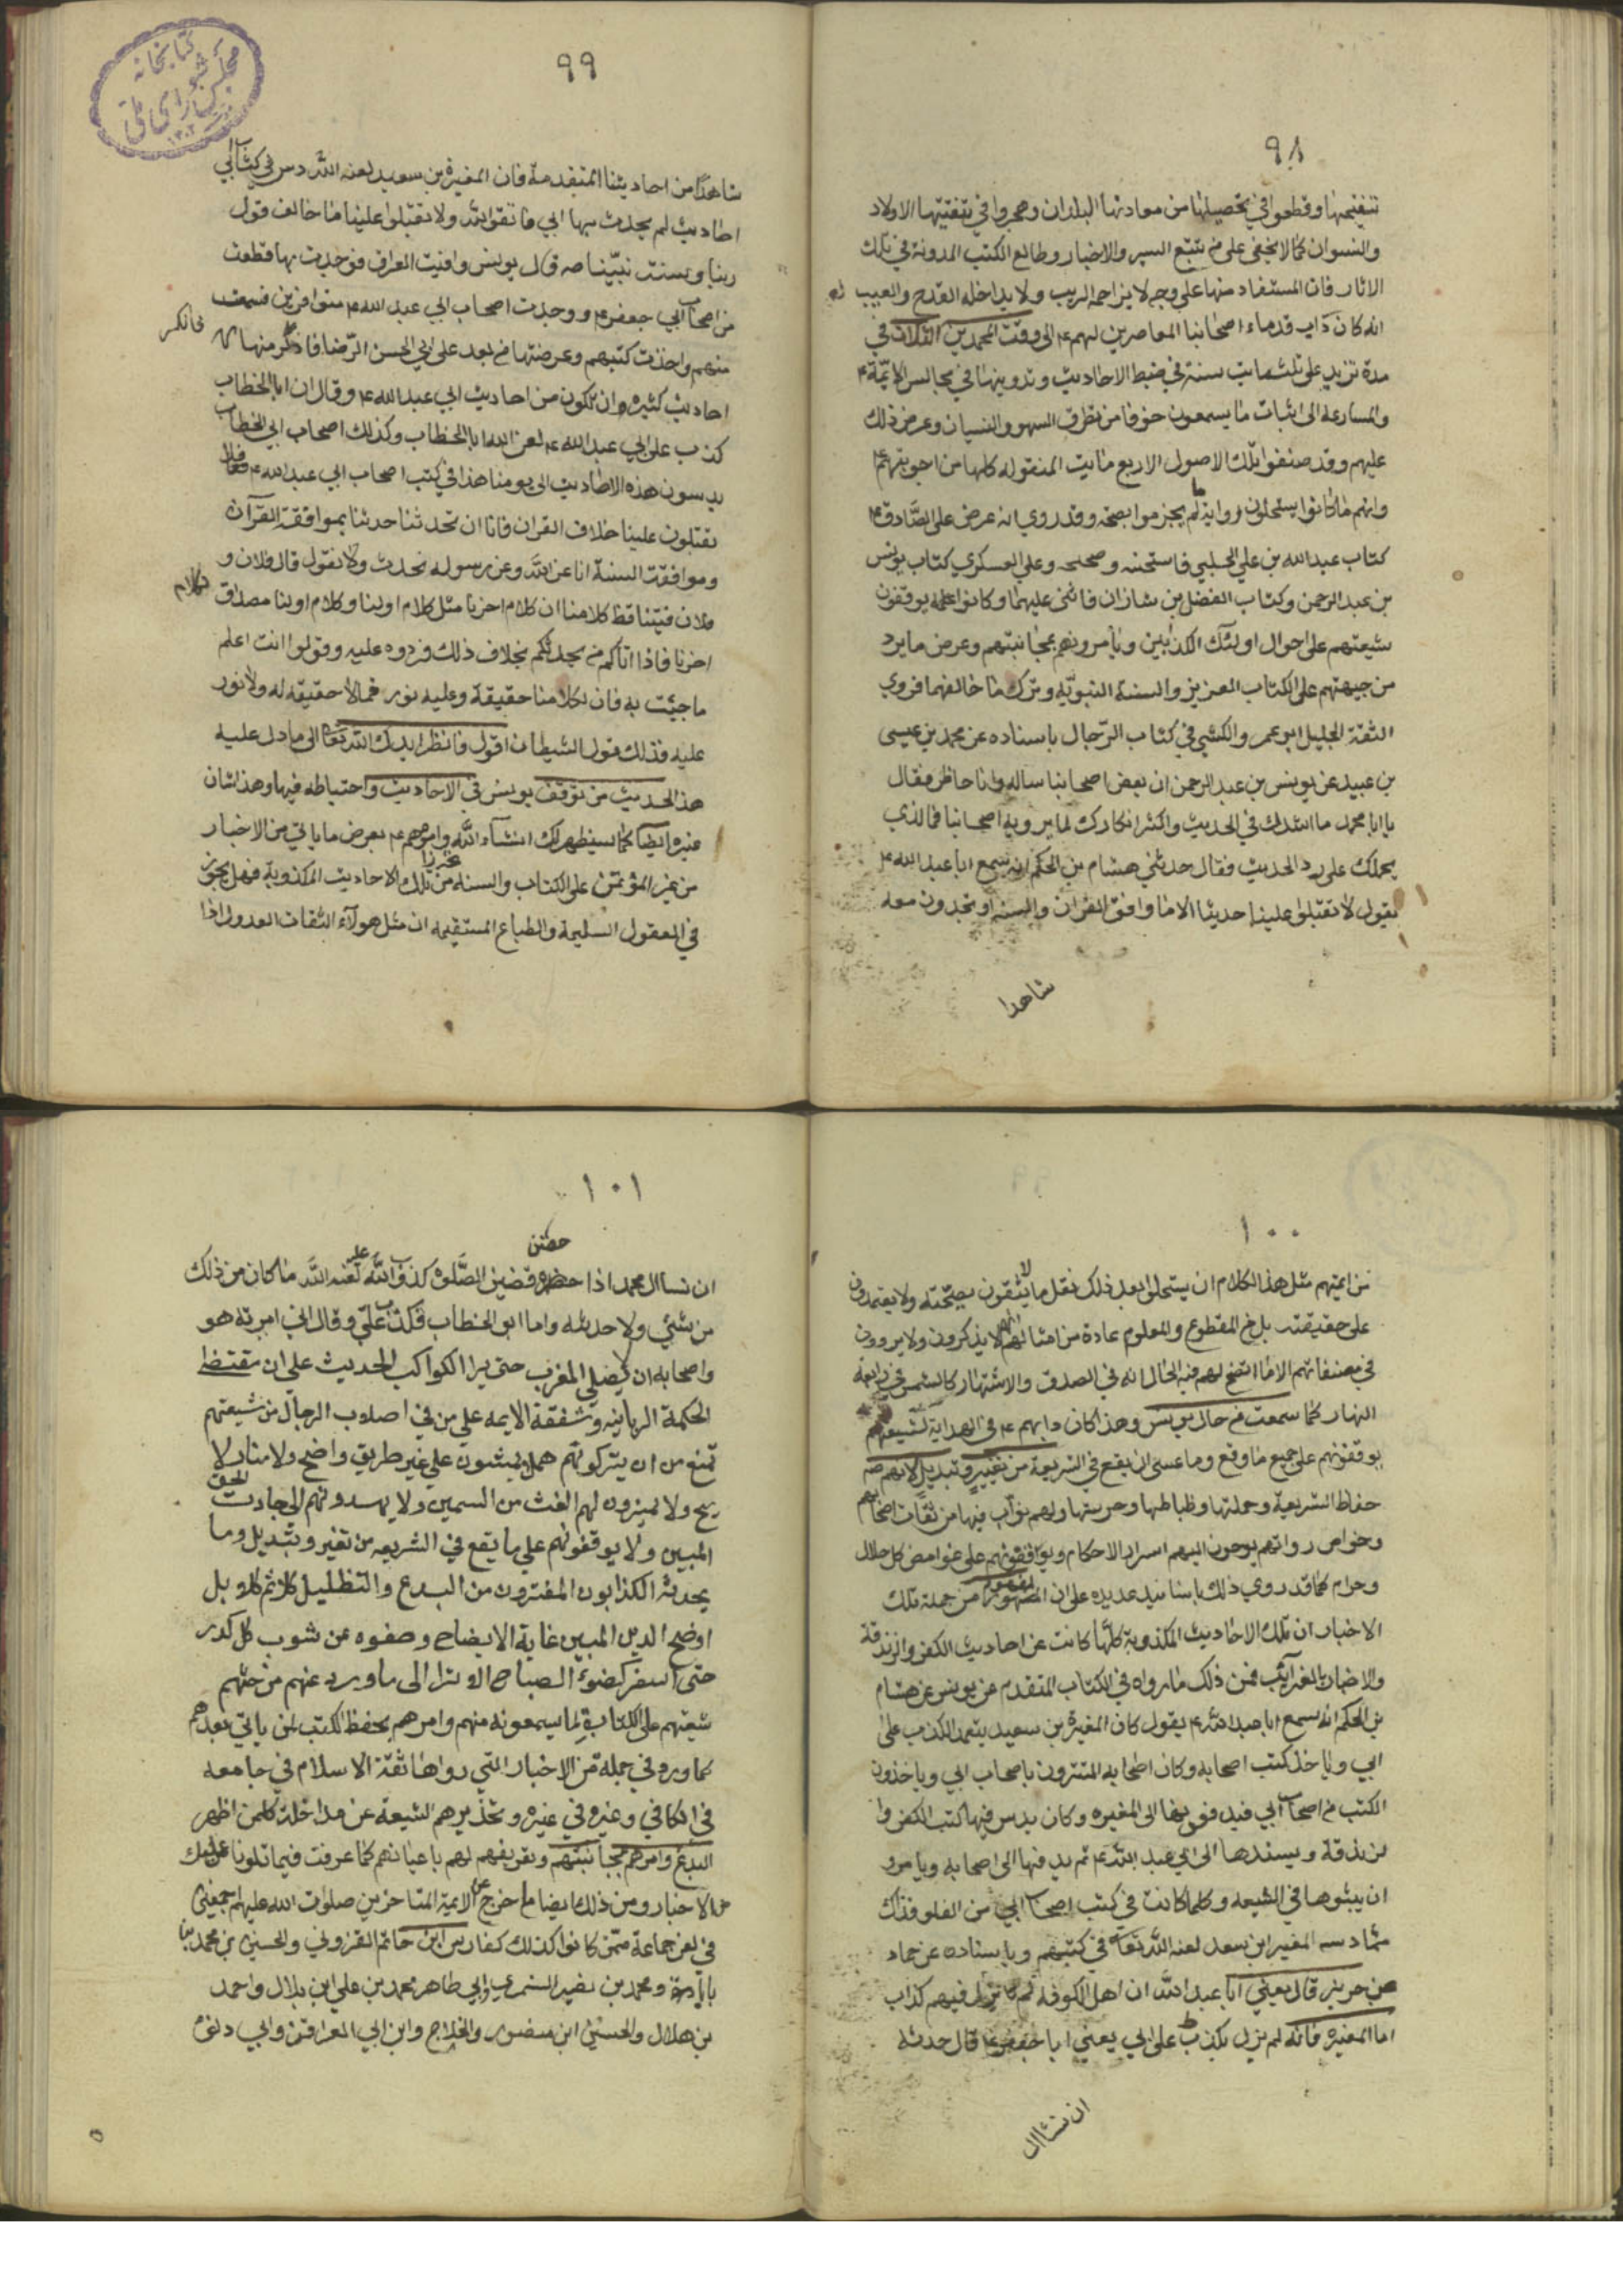 ٩٨
تنقيحها وقطعوا في تحصيلها من معادنها البلدان وهجروا في تنقيتها الاولاد
والنسوان كما لا يخفى على من تتبع السير والاخبار وطالع الكتب المدونة في تلك
الاثار فان المستفاد منها على وجه لا يزاحمه الريب ولا يداخله القدح والعيب
انه كان داب قدماء اصحابنا المعاصرين لهم ع الى وقت المحمدين الثلاث في
مدة تزيد على ثلثمايت سنة في ضبط الاحاديث وتدوينها في مجالس الايمّة ع
والمسارعة الى اثبات ما يسمعون خوفا من تطرق السهو والنسيان وعرض ذلك
عليهم وقد صنفوا تلك الاصول الاربع مايت المنقوله كلها من اجوبتهم ع
وانهم ما كانوا يستحلون رواية ما لم يجزموا بصحته وقد روي انه عرض على الصّادق ع
كتاب عبد الله بن علي الحلبي فاستحسنه وصححه وعلى العسكري كتاب يونس
بن عبد الرحمن وكتاب الفضل بن شاذان فاثنى عليهما وكانوا عليهم يوقفون
شيعتهم على احوال اولئك الكذابين ويأمرونهم بمجانبتهم وعرض ما يرد
من جيهتهم على الكتاب العزيز والسنة النبويّه وترك ما خالفهما فروي
الثقة الجليل ابو عمر والكشي في كتاب الرّجال باسناده عن محمد بن عيسى
بن عبيد عن يونس بن عبد الرحمن ان بعض اصحابنا ساله وانا حاظر فقال
يا ابا محمد ما اشدك في الحديث واكثر انكارك لما يرويه اصحابنا فما الذي
يحملك على رد الحديث فقال حدثني هشام بن الحكم انه سمع ابا عبد الله ع
يقول لا تقبلوا علينا حديثا الا ما وافق القران والسنة او تجدون معه
شاهدا
٩٩
شاهدًا من احاديثنا المتقدمة فان المغيرة بن سعيد لعنه الله دس في كتب اصحاب ابي
احاديث لم يحدث بها ابي فاتقوا الله ولا تقبلوا علينا ما خالف قول
ربنا وسنت نبيّنا ص قال يونس وافيت العراق فوجدت بها قطعت
من اصحاب ابي جعفر ع ووجدت اصحاب ابي عبد الله ع متوافرين فسمعت
منهم واخذت كتبهم وعرضتها من بعد على ابي الحسن الرّضا فانكر منها
فانكر
احاديث كثيره ان تكون من احاديث ابي عبد الله ع وقال ان ابا الخطاب
كذب على ابي عبد الله ع لعن الله ابا الخطاب وكذلك اصحاب ابي الخطاب
يدسون هذه الاحاديث الى يومنا هذا في كتب اصحاب ابي عبد الله ع فلا
تقبلون علينا خلاف القران فانا ان تحدثنا حدثنا بموافقة القرآن
وموافقت السنة انا عن الله وعن رسوله نحدث ولا نقول قال فلان و
فلان فيتناقظ كلامنا ان كلام اخرنا مثل كلام اولنا وكلام اولنا مصداق
لكلام
اخرنا فاذا اتاكم من يحدثكم بخلاف ذلك فردوه عليه وقولوا انت اعلم
ما جئت به فان لكلامنا حقيقة وعليه نور فما لا حقيقة له ولا نور
عليه فذلك قول الشيطان اقول فانظر ايدك الله تعالى الى ما دل عليه
هذا الحديث من توقف يونس في الاحاديث واحتياطه فيها وهذا شان
غيره ايضاً كما سيظهر لك انشآء الله وامرهم ع بعرض ما ياتي من الاخبار
من غير المؤتمن على الكتاب والسنة تحرزا من تلك الاحاديث المكذوبة فهل يجوز
في العقول السليمة والطباع المستقيمة ان مثل هولآء الثقات العدول اذا
١٠٠
من ايمتهم مثل هذا الكلام ان يستحلوا بعد ذلك نقل ما لا يثقون بصحّته ولا يعتمدون
على حقيقته بل من المقطوع والمعلوم عادة من امثالهم انهم لا يذكرون ولا يروون
في مصنفاتهم الا ما اتضح لهم فيه الحال انه في الصدق والاشتهار كالشمس في رابعة
النهار كما سمعت من حال يونس وهذا كان دابهم ع في الهداية لشيعتهم
يوقفونهم على جميع ما وقع وما عسى ان يقع في الشريعة من تغيير وتبديل لانهم ص
حفاظ الشريعة وحملتها وظباطها وحرستها ولهم نوآب فيها من ثقات اصحابهم
وخواص رواتهم يوحون اليهم اسرار الاحكام ويوقفونهم على غوامض كل حلال
وحرام كما قد روي ذلك باسانيد عديده على ان المفهوم من جملة تلك
الاخبار ان تلك الاحاديث المكذوبة كلّها كانت عن احاديث الكفر والزندقة
والاخبار بالغرآئب فمن ذلك ما رواه في الكتاب المتقدم عن يونس عن هشام
بن الحكم انه سمع ابا عبد الله ع يقول كان المغيرة بن سعيد يتعمد الكذب على
ابي وياخذ كتب اصحابه وكان اصحابه المتترون باصحاب ابي وياخذون
الكتب من اصحاب ابي فيدفعونها الى المغيره وكان يدس فيها كتب الكفر وا
لزندقة ويسندها الى ابي عبد الله ع ثم يدفنها الى اصحابه ويامرو
ان يبثوها في الشيعه وكلما كانت في كتب اصحاب ابي من الغلو فذلك
مما دسه المغير ابن سعد لعنه الله تعالى في كتبهم وباسناده عن حماد
عن حريز قال يعني ابا عبد الله ان اهل الكوفه لم يزل فيهم كذاب
اما المغيره فانه لم يزل يكذب على ابي يعني ابا جعفر ع قال حدثه
ان نساال
١٠١
ان نساال محمد اذا حضن قضين الصّلوة كذب والله عليه لعنه الله ما كان من ذلك
حضن
من شئي ولا حدثه واما ابو الخطاب فكذب عليّ وقال اني امرته هو
واصحابه ان لا يصلي المغرب حتى يرا الكواكب الحديث على ان مقتضا
الحكمة الربانيه وشفقة الايمه على من في اصلاب الرجال من شيعتهم
تمنع من ان يتركونهم هملا يمشون على غير طريق واضح ولا منار لا
يح ولا يميزون لهم الغث من السمين ولا يهدونهم الى جادت الحق
المبين ولا يوقفونهم على ما يقع في الشريعه من تغير وتبديل وما
يحدثه الكذابون المفترون من البدع والتظليل كلا ثم كلا بل
اوضح الدين المبين غاية الايضاح وصفوه عن شوب كل كدر
حتى اسفر كضوء الصباح الا ترا الى ما ورد عنهم من حثهم
شيعتهم على الكتابة لما يسمعونه منهم وامرهم بحفظ الكتب لمن ياتي بعدهم
كما ورد في جملة من الاخبار التي رواها ثقة الاسلام في جامعه
في الكافي وغيره في غيره وتحذيرهم الشيعة عن مداخلة كلمن اظهر
البدع وامرهم بمجانبتهم وتعريفهم لهم باعيانهم كما عرفت فيما تلونا عليك
من الاخبار ومن ذلك ايضا ما خرج عن الايمة المتاخرين صلوات الله عليهم اجمعين
في لعن جماعة ممّن كانوا كذلك كفارس ابن حاتم القزوني والحسين بن محمد بن
بابا ومحمد بن نصير النميري وابي طاهر محمد بن علي ابن بلال واحمد
بن هلال والحسين ابن منصور والحلاج وابن ابي العزاقر وابي دلف